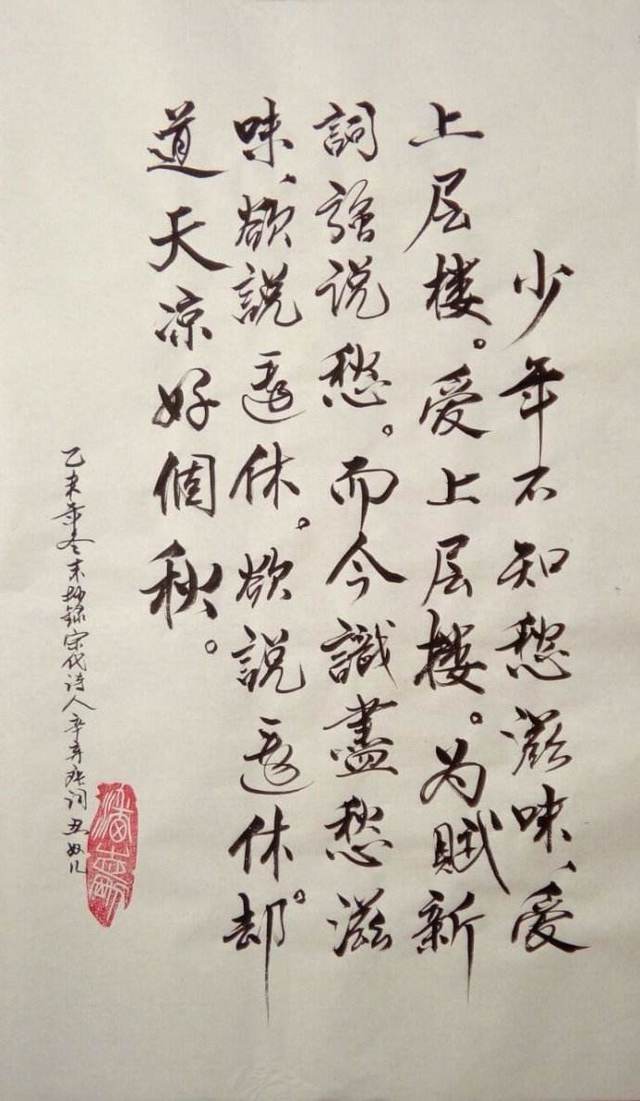 少年不知愁滋味、爱
上层楼。爱上层楼。为赋新
詞強说愁。而今識盡愁滋
味、欲說還休。欲說還休。却
道天凉好個秋。
乙未年冬末抄錄宋代诗人辛弃疾词